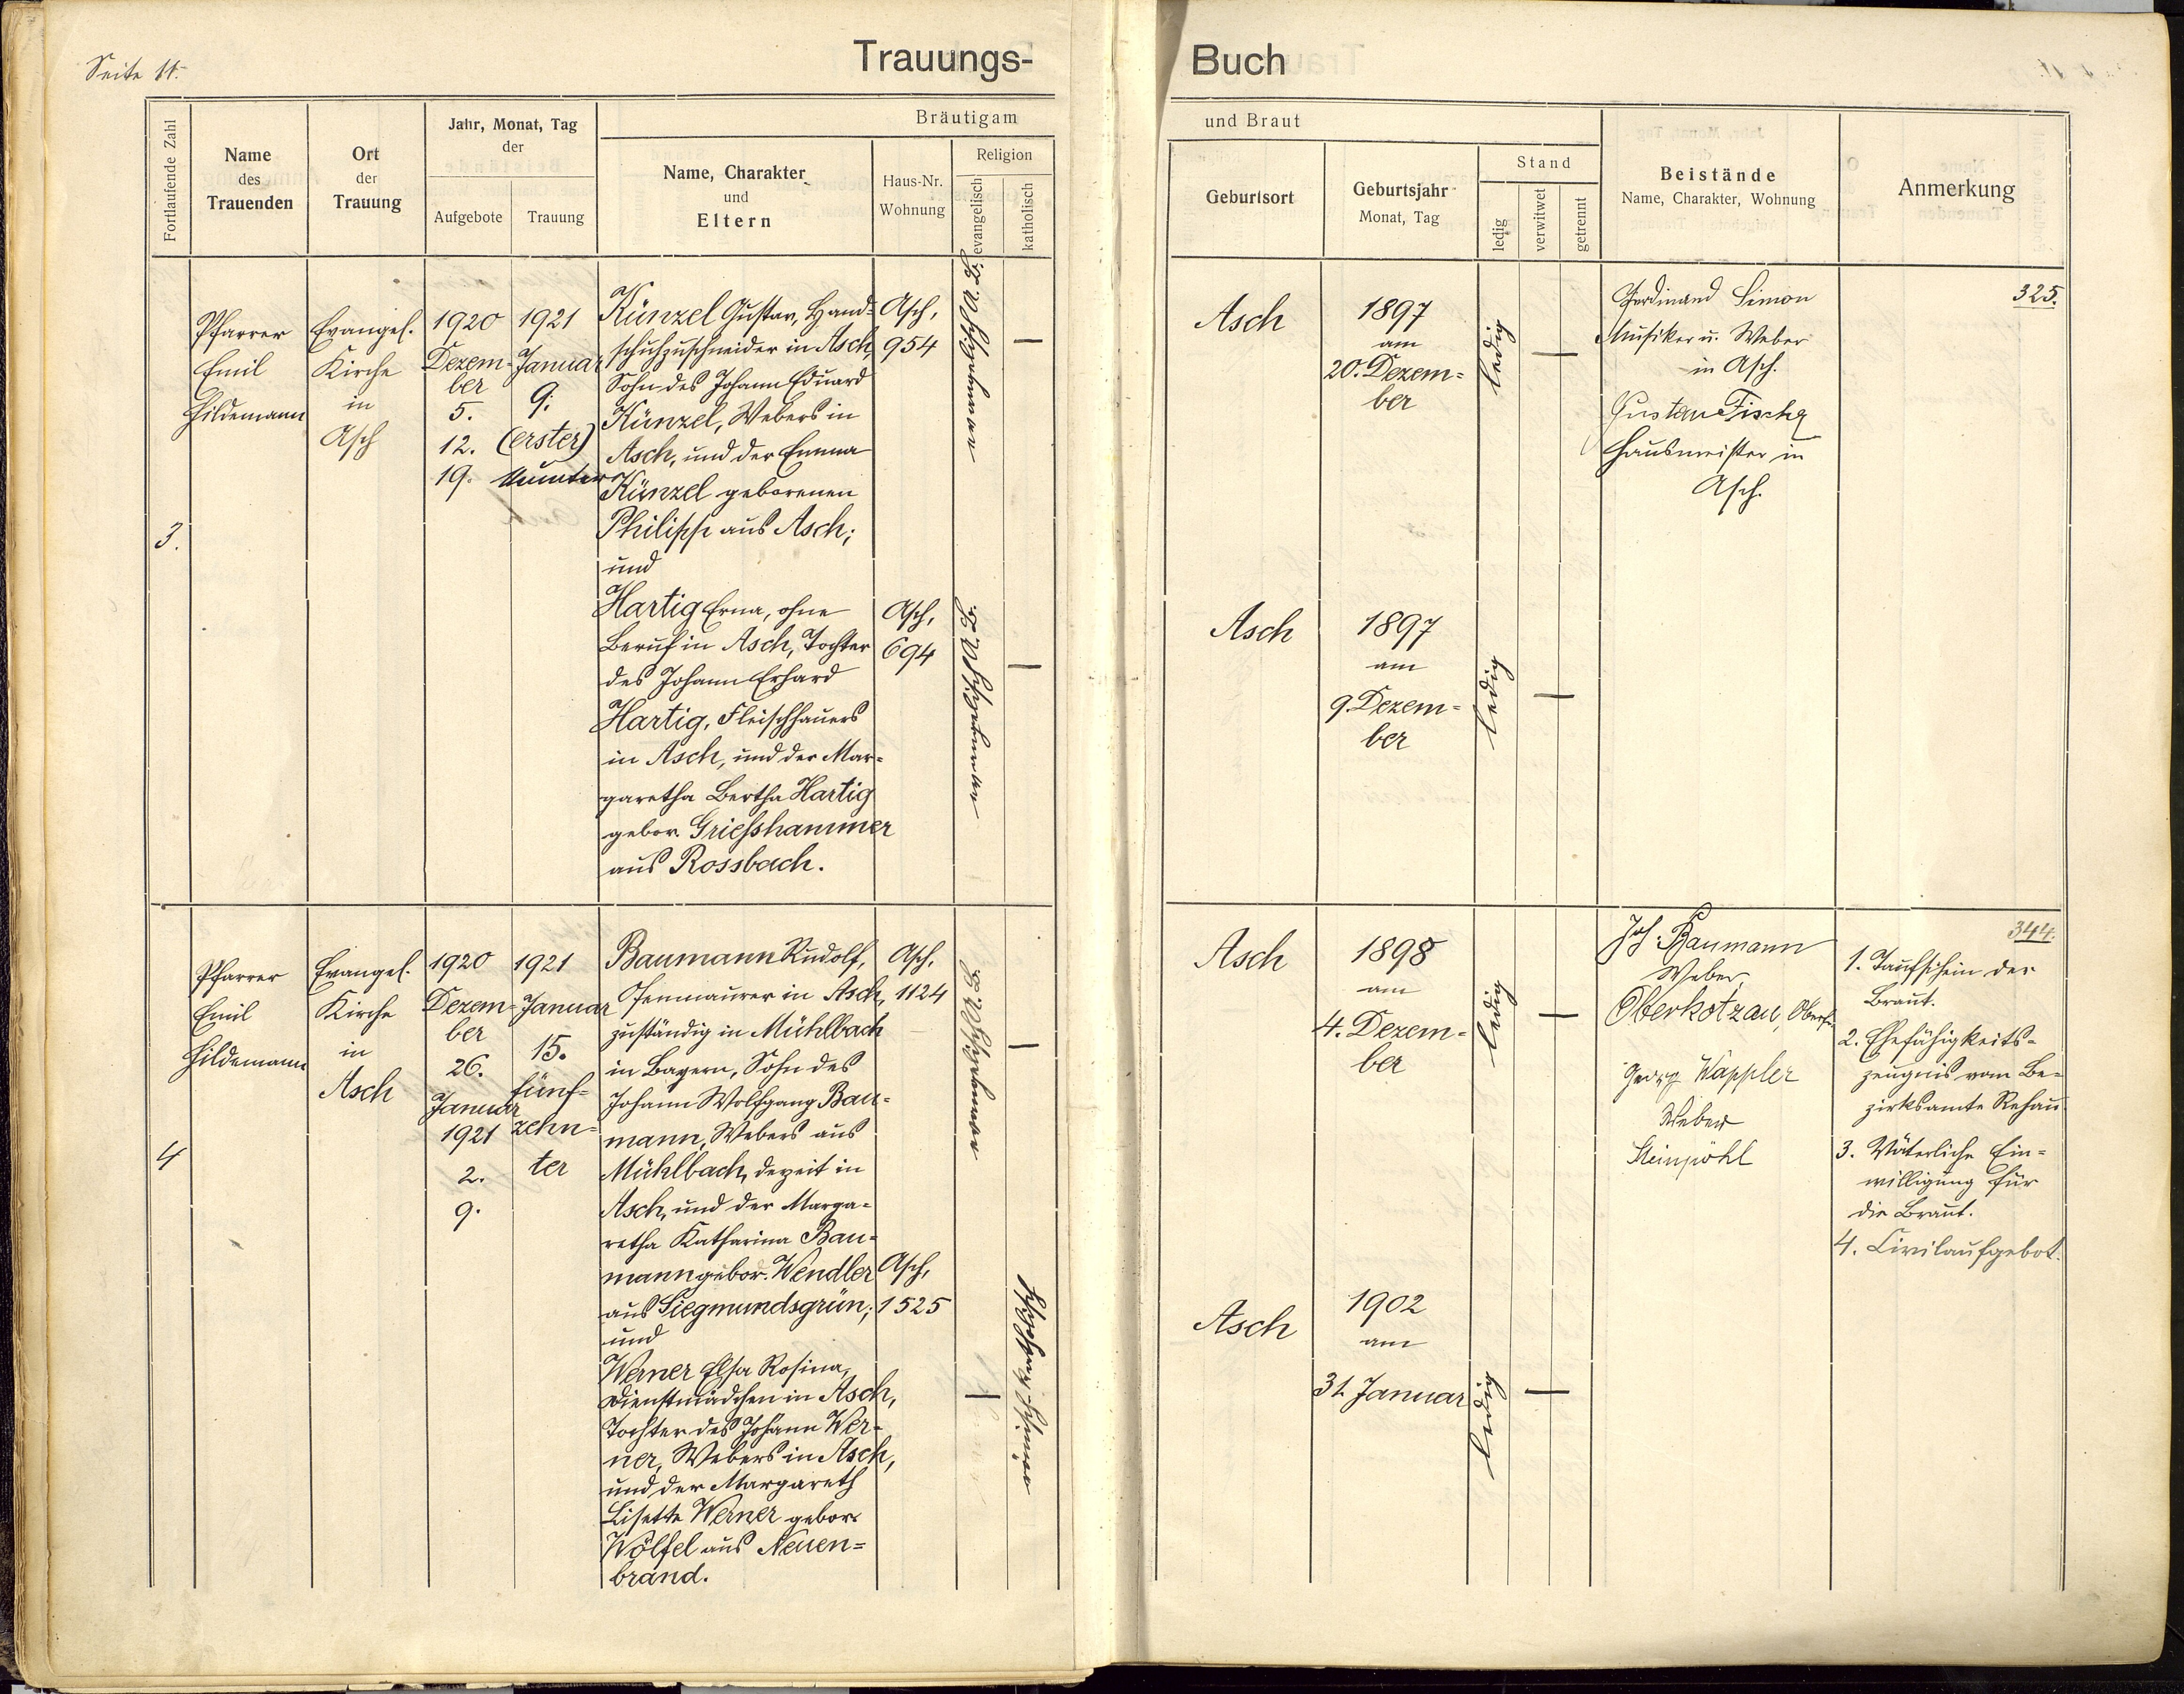 Seite 11.
Trauungs-
Buch
Fortlaufende Zahl
Name
des
Trauenden
Ort
der
Trauung
Jahr, Monat, Tag
der
Aufgebote
Trauung
Bräutigam
Name, Charakter
und
Eltern
Haus-Nr.
Wohnung
Religion
evangelisch
katholisch
und Braut
Geburtsort
Geburtsjahr
Monat, Tag
Stand
ledig
verwitwet
getrennt
Beistände
Name, Charakter, Wohnung
Anmerkung
3.
Pfarrer
Emil
Hildemann
Evangel.
Kirche
in
Asch
1920
Dezem-
ber
5.
12.
19.
1921
Januar
9.
(erster)
neunter
Künzel Gustav, Hand-
schuhzuschneider in Asch,
Sohn des Johann Eduard
Künzel, Webers in
Asch, und der Emma
Künzel geborenen
Philipp aus Asch;
und
Hartig Erna, ohne
Beruf in Asch, Tochter
des Johann Erhard
Hartig, Fleischhauers
in Asch, und der Mar-
garetha Bertha Hartig
gebor. Griesshammer
aus Rossbach.
Asch,
954
—
Asch,
694
—
Asch
1897
am
20. Dezem-
ber
ledig
—
Asch
1897
am
9. Dezem-
ber
ledig
—
Ferdinand Simon
Musiker u. Weber
in Asch.
Gustav Fischer
Hausmeister in
Asch.
325.
4
Pfarrer
Emil
Hildemann
Evangel.
Kirche
in
Asch
1920
Dezem-
ber
26.
Januar
1921
2.
9.
1921
Januar
15.
fünf-
zehn-
ter
Baumann Rudolf,
Ofenmaurer in Asch,
zuständig in Mühlbach
in Bayern, Sohn des
Johann Wolfgang Bau-
mann, Webers aus
Mühlbach, derzeit in
Asch, und der Marga-
retha Katharina Bau-
mann gebor. Wendler
aus Siegmundsgrün;
und
Werner Elsa Rosina,
Dienstmädchen in Asch,
Tochter des Johann Wer-
ner, Webers in Asch,
und der Margareth
Lisette Werner gebor.
Wölfel aus Neuen-
brand.
Asch,
1124
—
Asch,
1525
—
Asch
1898
am
4. Dezem-
ber
ledig
—
Asch
1902
am
31. Januar
ledig
—
Joh. Baumann
Weber
Oberkotzau,
Georg Wappler
Weber
Steinpöhl
344.
1. Taufschein der
Braut.
2. Ehefähigkeits-
zeugnis vom Be-
zirksamte Rehau
3. Väterliche Ein-
willigung für
die Braut.
4. Civilaufgebot.